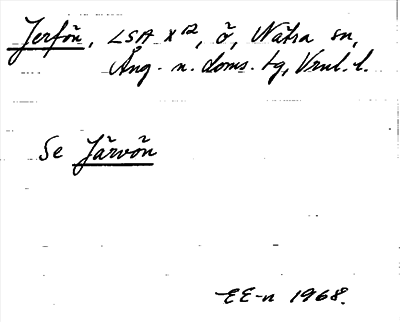 Jerfön, LSA X 12, ö, Nätra sn,
Ång. n. doms. tg, Vrnl. l.
Se Järvön
EE-n 1968.